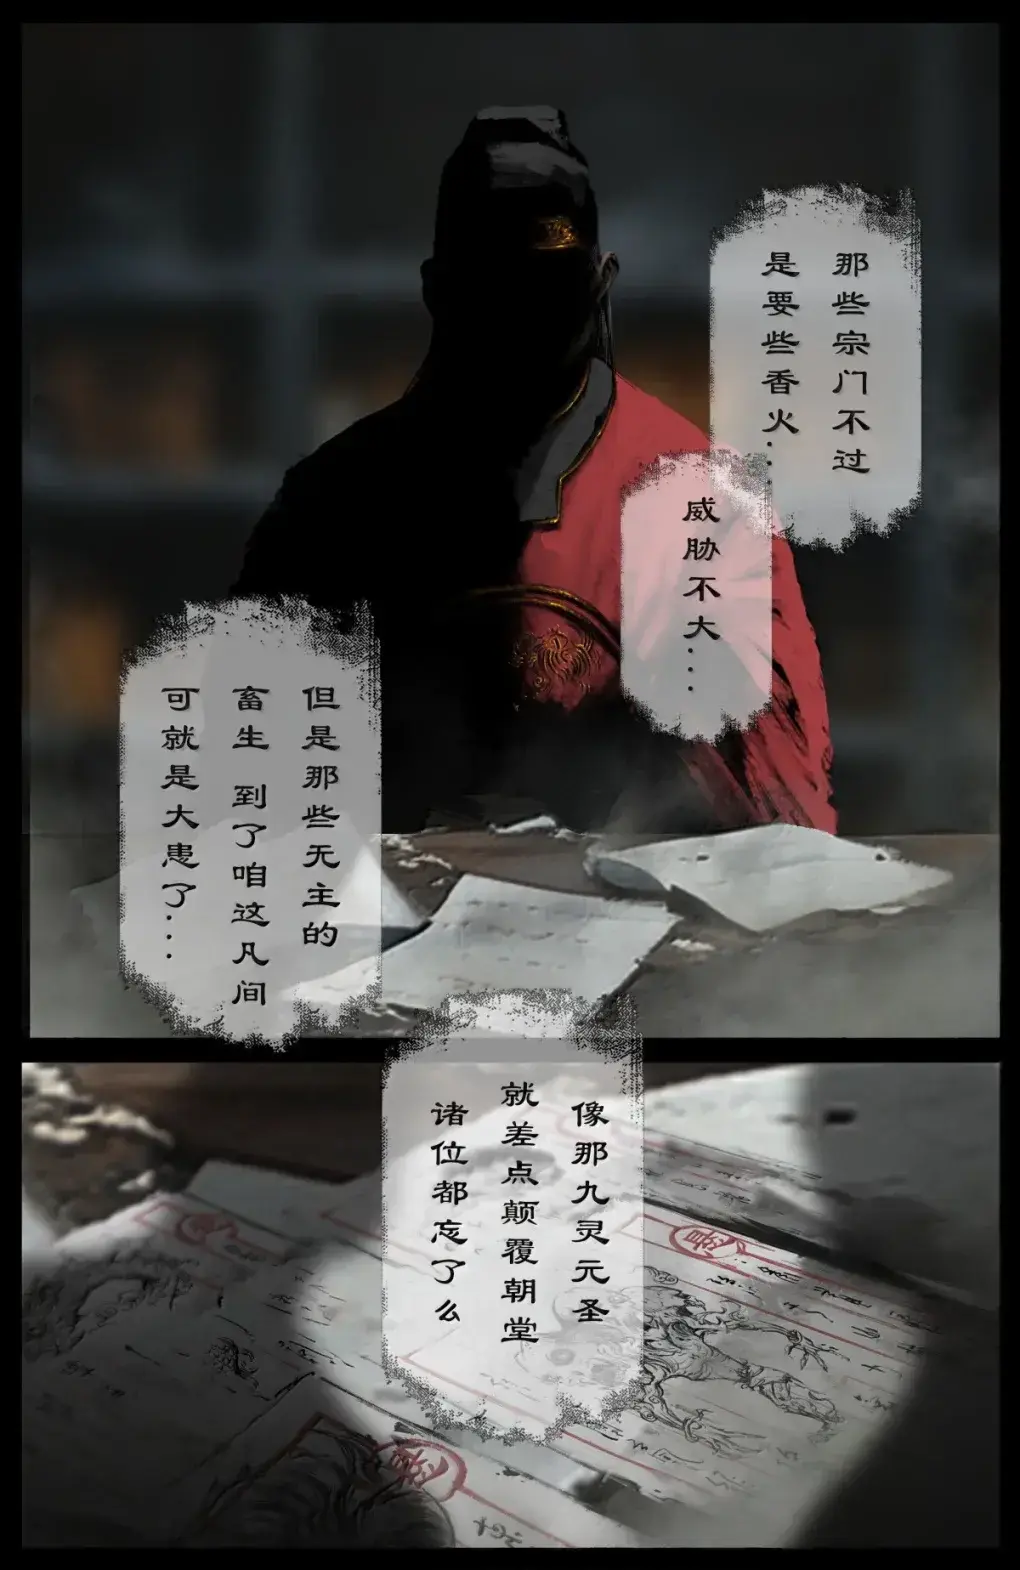 那些宗门不过
是要些香火....
威胁不大...
但是那些无主的
畜生 到了咱这凡间
可就是大患了....
像那九灵元圣
就差点颠覆朝堂
诸位都忘了么